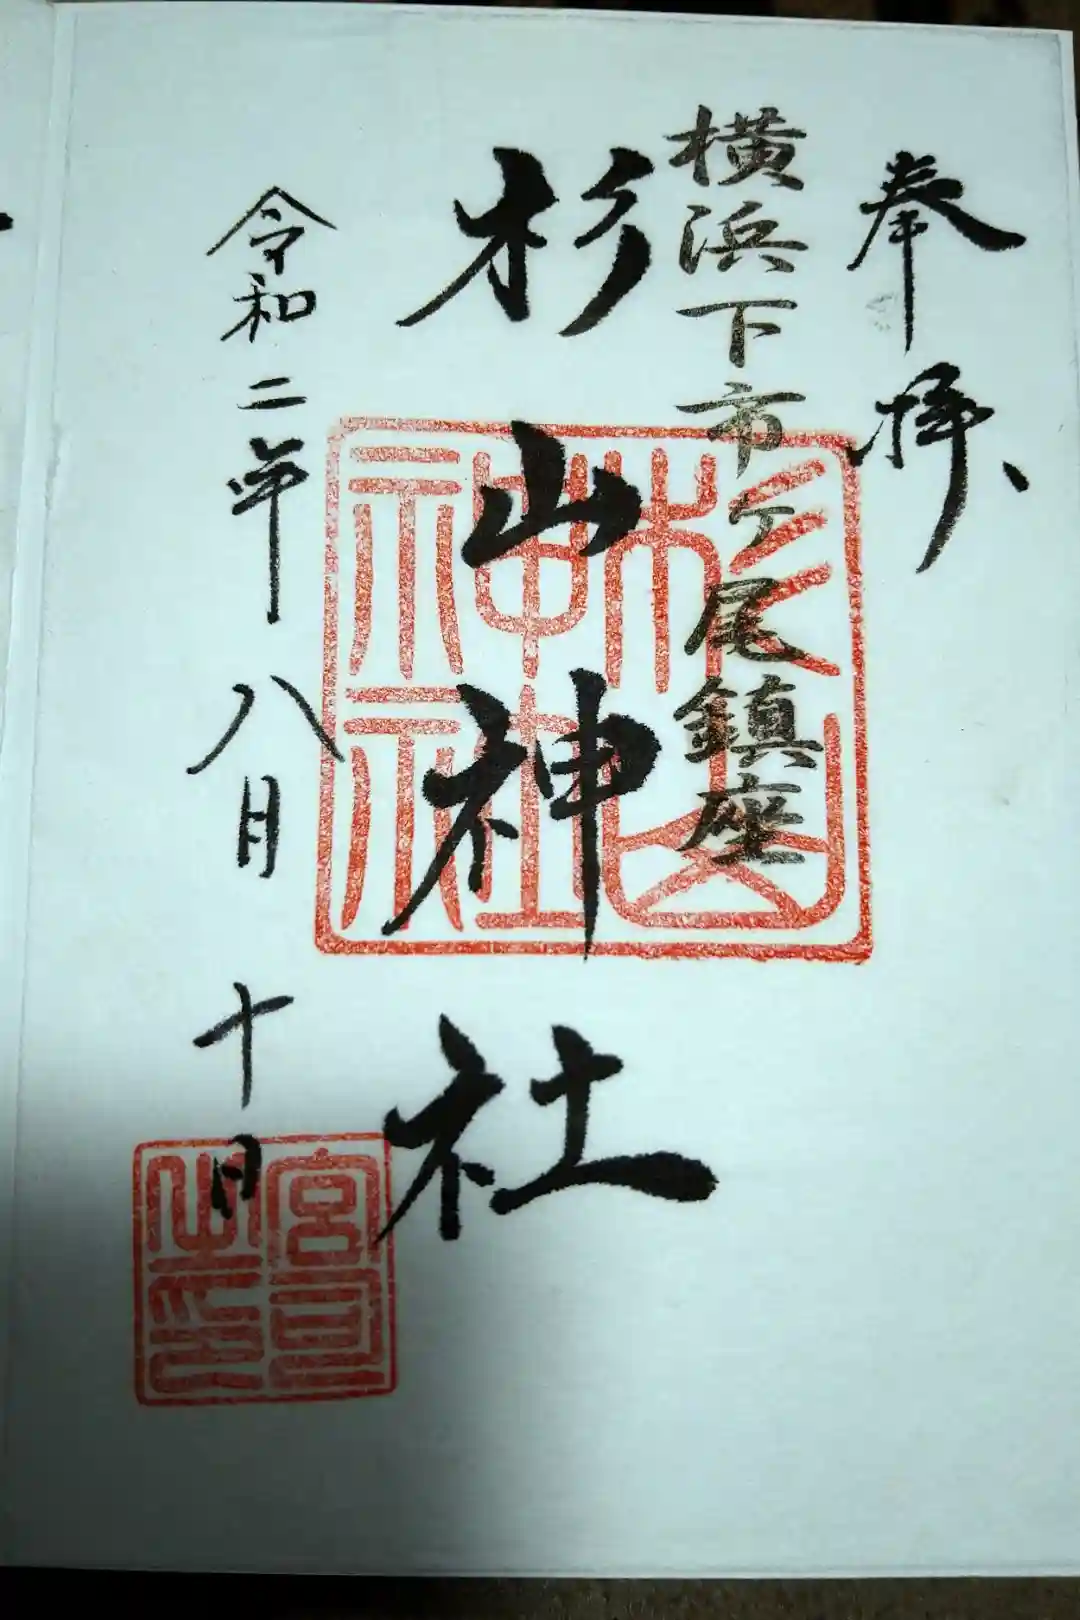 奉拝、
横浜下市ヶ尾鎮座
杉山神社
杉山神社
令和二年八月十日
宮司之印